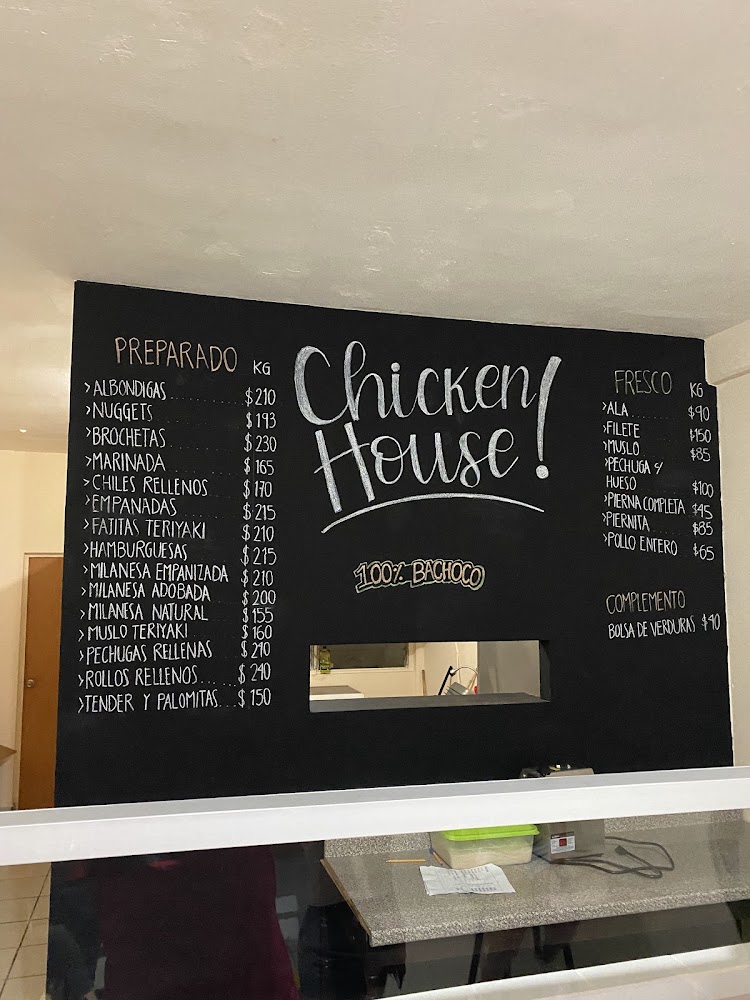 PREPARADO KG
>ALBONDIGAS.......... $210
>NUGGETS $193
>BROCHETAS $230
>MARINADA $165
>CHILES RELLENOS $170
>EMPANADAS $215
>FAJITAS TERIYAKI $210
>HAMBURGUESAS $215
>MILANESA EMPANIZADA $210
>MILANESA ADOBADA $200
>MILANESA NATURAL $155
>MUSLO TERIYAKI $160
>PECHUGAS RELLENAS
>ROLLOS RELLENOS.... $240
>TENDER Y PALOMITAS... $150
Chicken
House!
100% BACHOCO
FRESCO KG
>ALA $90
>FILETE $150
>MUSLO $85
>PECHUGA Y
HUESO $100
>PIERNA COMPLETA
>PIERNITA $85
>POLLO ENTERO $65
COMPLEMENTO
BOLSA DE VERDURAS